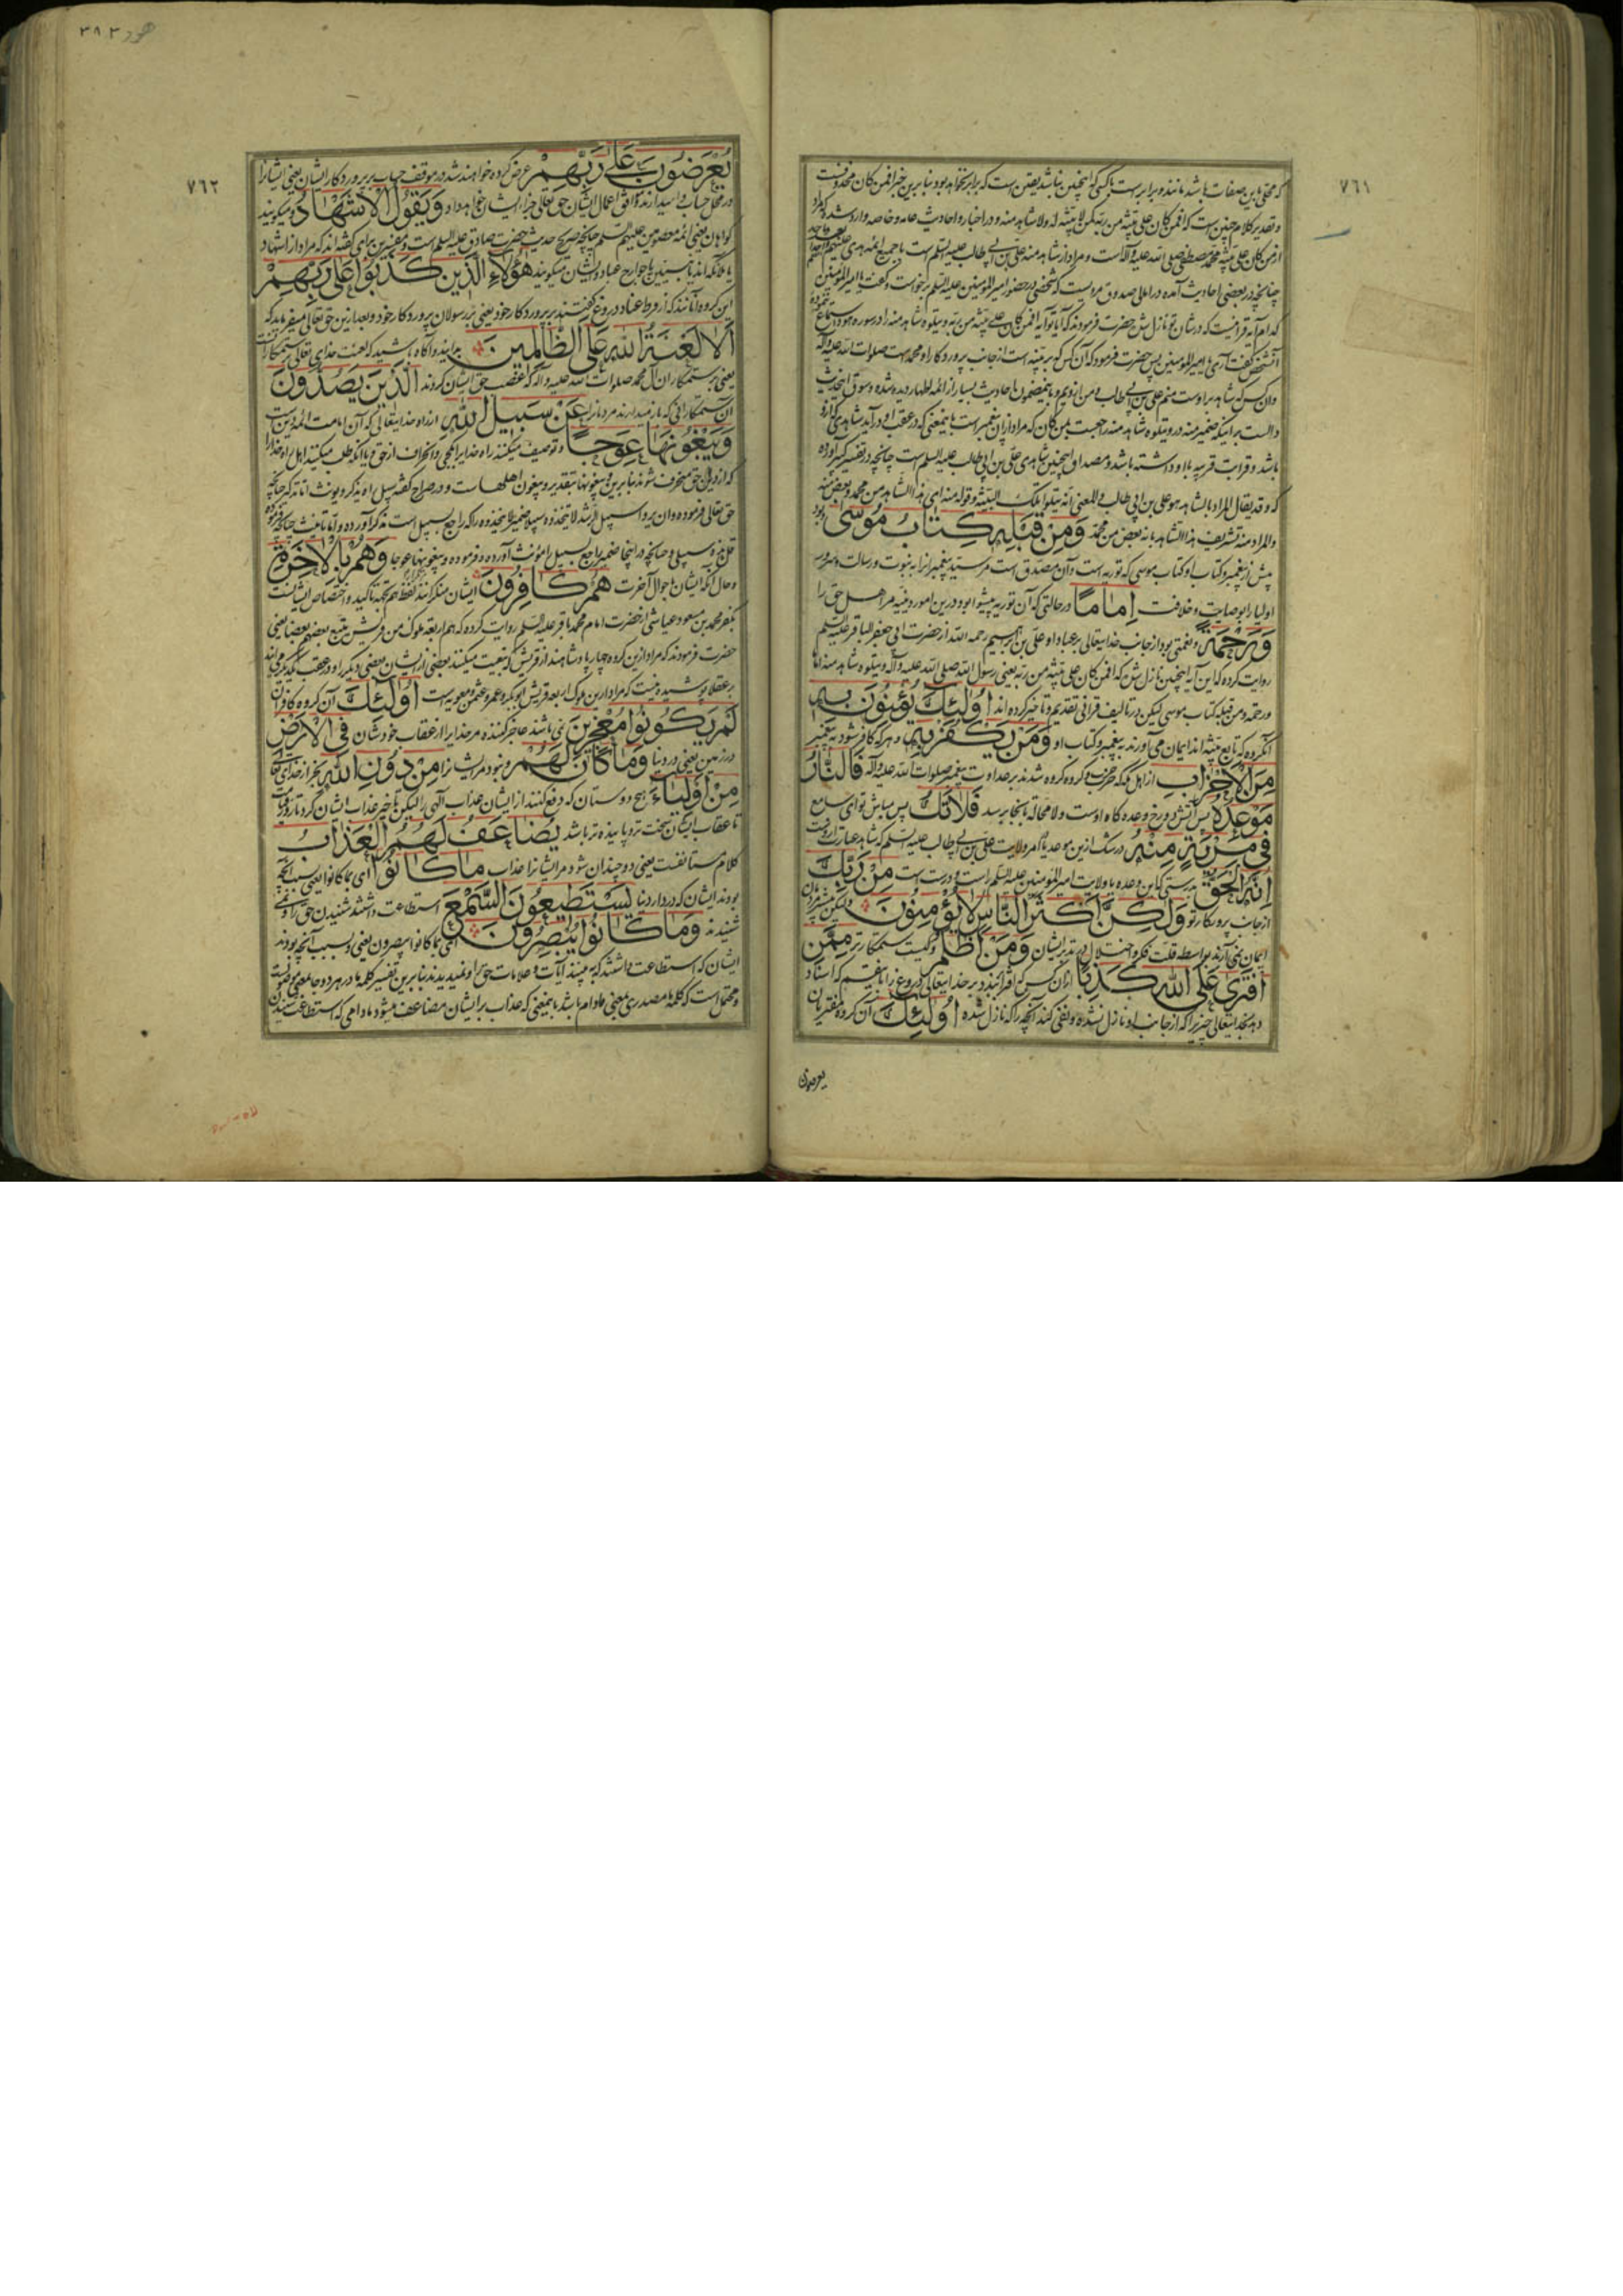 ٧٦١
که محقق باین صفات باشد مانند و برابر است با کسی که اینچنین نباشد یقین است که برابر نخواهد بود بنا برین خبر افمن کان محذوفست
و تقدیر کلام چنین است که افمن کان علی بینة من ربه کمن لا بینة له ولا شاهد منه و در اخبار و احادیث عامه و خاصه وارد شده که مراد
از من کان علی بینة محمد مصطفی صلی الله علیه و آله است و مراد از شاهد منه علی بن ابی طالب علیه السلم است با جمیع ائمه هدی علیهم
چنانچه در بعضی احادیث آمده در امالی صدوق مرویست که شخصی در حضور امیر المؤمنین علیه السلم برخواست و گفت یا امیر المؤمنین
کدام آیه قرانیست که در شان تو نازل شده حضرت فرمودند که آیا تو آیه افمن کان علی بینة من ربه و یتلوه شاهد منه را در سوره هود
آنشخص گفت آری یا امیر المؤمنین پس حضرت فرمود که آن کس که بر بینه است از جانب پروردگار او محمدست صلوات الله علیه و آله
و آن کس که شاهد بر اوست منم علی بن ابی طالب و من ازویم و باینمضمون احادیث بسیار از ائمه اطهار دیده شده و سوق
دالست بر اینکه ضمیر منه در و یتلوه شاهد منه راجعست بمن کان که مراد ازان پیغمبر است باینمعنی که در عقب او در آید شاهدی که از او
باشد و قرابت قریبه با او داشته باشد و مصداق اینچنین شاهدی علی بن ابی طالب علیه السلم است چنانچه در تفسیر کبیر آورده
که و قد یقال المراد بالشاهد هو علی بن ابی طالب و المعنی انه یتلو تلک البینة و قوله منه ای هذا الشاهد من محمد و بعض منه
والمراد منه تشریف هذا الشاهد بانه بعض من محمد وَمِنْ قَبْلِهِ كِتَابُ مُوسَى و بود
پیش از پیغمبر و کتاب او کتاب موسی که توریه است و آن مصدق است مر سید پیغمبرانرا به نبوت و رسالت و
اولیا را بوصایت و خلافت إِمَامًا در حالتی که آن توریه پیشوا بود در این امور دینیه مر اهل حق را
وَرَحْمَةً و نعمتی بود از جانب خدایتعالی بر عباد او علی بن ابرهیم رحمه الله از حضرت ابی جعفر الباقر علیه السلم
روایت کرده که این آیه اینچنین نازل شده که افمن کان علی بینة من ربه یعنی رسول الله صلی الله علیه و آله و یتلوه شاهد منه اماما
و رحمة و من قبله کتاب موسی لیکن در تالیف قرانی تقدیم و تاخیر کرده اند أُولَئِكَ يُؤْمِنُونَ بِهِ
آنگروه که تابع بینه اند ایمان می آورند به پیغمبر و کتاب او وَمَنْ يَكْفُرْ بِهِ و هر که کافر شود به پیغمبر
مِنَ الْأَحْزَابِ از اهل مکه که حزب و گروه گروه شدند بر عداوت پیغمبر صلوات الله علیه و آله فَالنَّارُ
مَوْعِدُهُ پس آتش دوزخ وعده گاه اوست و لا محاله بآنجا برسد فَلَا تَكُ پس مباش تو ای سامع
فِي مِرْيَةٍ مِنْهُ در شک ازین موعد یا از امر ولایت علی بن ابی طالب علیه السلم که شاهد عبارت ازوست
إِنَّهُ الْحَقُّ بدرستی که این وعده یا ولایت امیر المؤمنین علیه السلم راست و درست است مِنْ رَبِّكَ
از جانب پروردگار تو وَلَكِنَّ أَكْثَرَ النَّاسِ لَا يُؤْمِنُونَ و لیکن بیشتر مردمان
ایمان نمی آرند بواسطه قلت فکر و اختلال در تدبر ایشان وَمَنْ أَظْلَمُ و کیست ستمکارتر مِمَّنِ
افْتَرَى عَلَى اللَّهِ كَذِبًا ازان کس که افترا بندد بر خدایتعالی دروغ را باینقسم که اسناد
دهد بخدایتعالی چیزیرا که از جانب او نازل نشده و نفی کند آنچه را که نازل شده أُولَئِكَ آن گروه مفتریان
یعرضون
هود ٣٨٣
٧٦٢
يُعْرَضُونَ عَلَى رَبِّهِمْ عرض کرده خواهند شد در موقف حساب بر پروردگار ایشان یعنی ایشانرا
در محل حساب وا میدارند تا موافق اعمال ایشان حق تعالی جزای ایشان خواهد داد وَيَقُولُ الْأَشْهَادُ و میگویند
گواهان یعنی ائمه معصومین علیهم السلم چنانچه صریح حدیث حضرت صادق علیه السلم است و مفسرین برای گفته اند که مراد از اشهاد
یا ملائکه اند یا نبیین یا جوارح عباد و ایشان میگویند هَؤُلَاءِ الَّذِينَ كَذَبُوا عَلَى رَبِّهِمْ
این گروه آنانند که از فرط عناد دروغ گفتند بر پروردگار خود یعنی بر رسولان پروردگار خود و بعد ازین حق تعالی میفرماید که
أَلَا لَعْنَةُ اللَّهِ عَلَى الظَّالِمِينَ بدانید و آگاه باشید که لعنت خدای تعالی بر ستمکارانست
یعنی بر ستمکاران آل محمد صلوات الله علیه و آله که غصب حق ایشان کردند الَّذِينَ يَصُدُّونَ
آن ستمکارانی که باز میدارند مردمانرا عَنْ سَبِيلِ اللَّهِ از راه خدایتعالی که آن امامت ائمه دین است
وَيَبْغُونَهَا عِوَجًا و توصیف میکنند راه خدا را بکجی و انحراف از حق و یا آنکه طلب میکنند اهل راه خدا را
که از دین حق منحرف شوند بنا برین و یبغونها بتقدیر و یبغون اهلهاست و در صراح گفته سبیل راه یذکر و یؤنث اما تذکیر چنانچه
حق تعالی فرموده و ان یروا سبیل الرشد لا یتخذوه سبیلا ضمیر لا یتخذوه را که راجع بسبیل است مذکر آورده و اما تانیث چنانچه فرموده
قل هذه سبیلی و چنانچه در اینجا ضمیر راجع بسبیل را مؤنث آورده و فرموده و یبغونها عوجا وَهُمْ بِالْآخِرَةِ
و حال آنکه ایشان باحوال آخرت هُمْ كَافِرُونَ ایشان منکرانند لفظ هم بجهة تاکید و اختصاص ایشانست
بکفر محمد بن مسعود عیاشی از حضرت امام محمد باقر علیه السلم روایت کرده که هم اربعة ملوک من قریش یتبع بعضهم بعضا یعنی
حضرت فرمودند که مراد ازین گروه چهار پادشاهند از قریش که تبعیت میکنند بعضی از ایشان بعضی دیگر را و در عقب یکدیگر می آیند
بر عقلا پوشیده نیست که مراد ازین ملوک اربعه قریش ابوبکر و عمر و عثمن و معویه است أُولَئِكَ آن گروه کافران
لَمْ يَكُونُوا مُعْجِزِينَ نمی باشند عاجز کننده مر خدا را از عقاب خودشان فِي الْأَرْضِ
در زمین یعنی در دنیا وَمَا كَانَ لَهُمْ و نبود مر ایشانرا مِنْ دُونِ اللَّهِ بجز از خدای تعالی
مِنْ أَوْلِيَاءَ هیچ دوستان که دفع کنند از ایشان عذاب الهی را لیکن تاخیر عذاب ایشان کرد تا روز قیامت
تا عقاب ایشان سخت تر و پاینده تر باشد يُضَاعَفُ لَهُمُ الْعَذَابُ
کلام مستانفست یعنی دو چندان شود مر ایشانرا عذاب مَا كَانُوا ای بما کانوا یعنی بسبب آنچه
بودند ایشان که در دار دنیا يَسْتَطِيعُونَ السَّمْعَ استطاعت داشتند شنیدن حق را و نمی
شنیدند وَمَا كَانُوا يُبْصِرُونَ ای بما کانوا یبصرون یعنی و بسبب آنچه بودند
ایشان که استطاعت داشتند که به بینند آیات و علامات حق را و نمیدیدند بنا برین تفسیر کلمه ما در هر دو جا بمعنی موصولست
و محتمل است که کلمه ما مصدری بمعنی مادام باشد باینمعنی که عذاب بر ایشان مضاعف میشود مادامی که استطاعت شنیدن